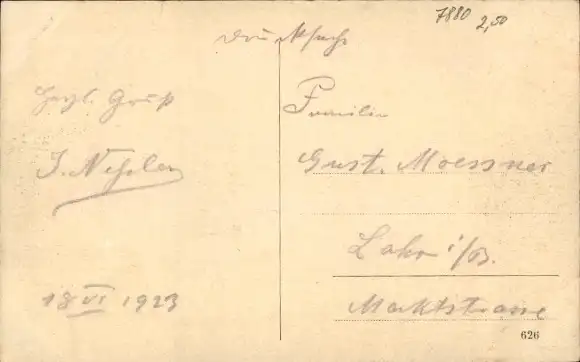 7880 2,50
Drucksache
Herzl. Gruß
J. Nessler
18 VI 1923
Familie
Gust. Moessner
Lahr i/B.
Marktstrasse
626